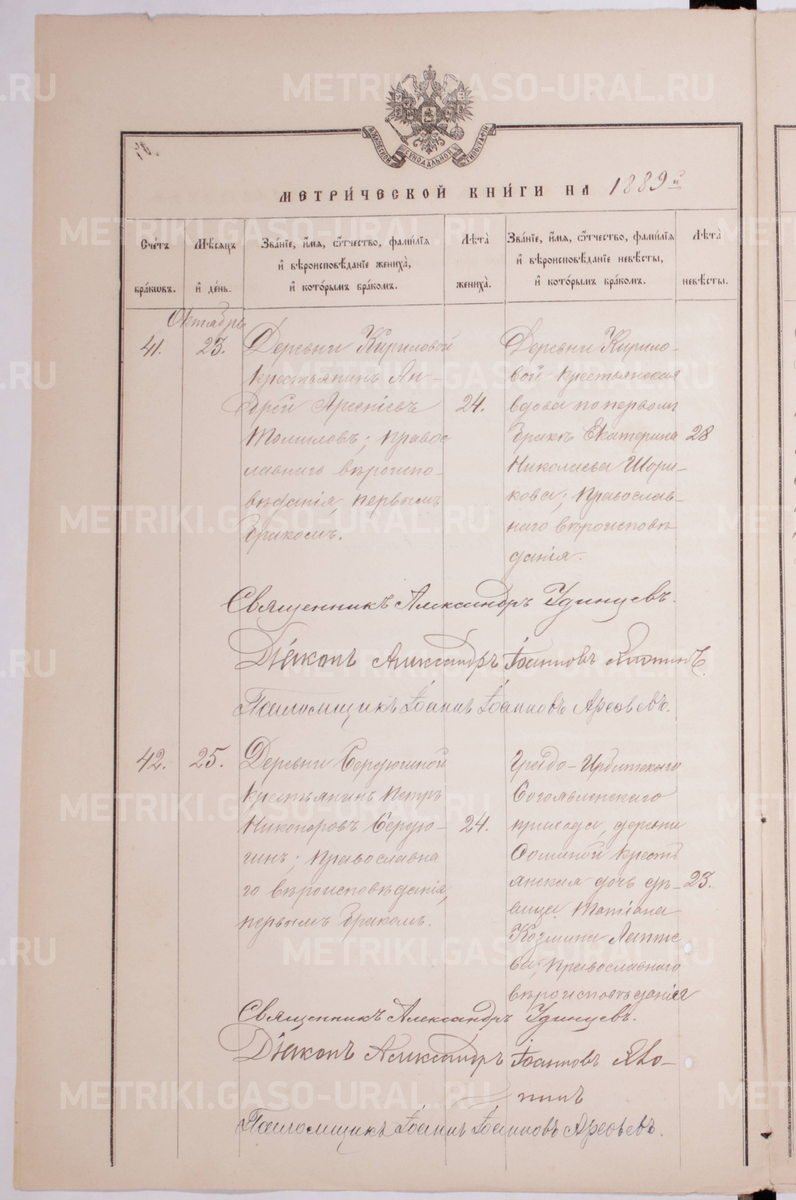 МЕТРИ́ЧЕСКОЙ КНИ́ГИ НА 1889й
Сче́тъ бра́ковъ.
Мѣ́сяцъ и҆ де́нь.
Зва́нїе, и҆́мя, ѻ҆́тчество, фами́лїя
и҆ вѣроисповѣ́данїе жениха̀,
и҆ кото́рымъ бра́комъ.
Лѣ́та жениха̀.
Зва́нїе, и҆́мя, ѻ҆́тчество, фами́лїя
и҆ вѣроисповѣ́данїе невѣ́сты,
и҆ кото́рымъ бра́комъ.
Лѣ́та невѣ́сты.
Октябрь
41.
23.
Деревни Кириловой
крестьянинъ Ан-
дрей Арсеніевъ
Томиловъ; право-
славнаго вѣроиспо-
вѣданія, первымъ
бракомъ.
24.
Деревни Кирило-
вой крестьянская
вдова по первомъ
бракѣ Екатерина
Николаева Шори-
кова; православ-
наго вѣроисповѣ
данія.
28
Священникъ Александръ Удинцевъ.
Діаконъ Александръ Іоанновъ
Псаломщикъ Іоаннъ Іоанновъ Арефьевъ.
42.
25.
Деревни Бердюгиной
крестьянинъ Петръ
Никоноровъ Бердю-
гинъ; православна
го вѣроисповѣданія,
первымъ бракомъ.
24.
Градо-Ирбитскаго
Богоявленскаго
прихода, деревни
крестъ
янская дочь дѣ-
вица Татіана
Козмина Лапте
ва; православнаго
вѣроисповѣданія
23.
Священникъ Александръ Удинцевъ.
Діаконъ Александръ Іоанновъ
Псаломщикъ Іоаннъ Іоанновъ Арефьевъ.
METRIKI.GASO-URAL.RU